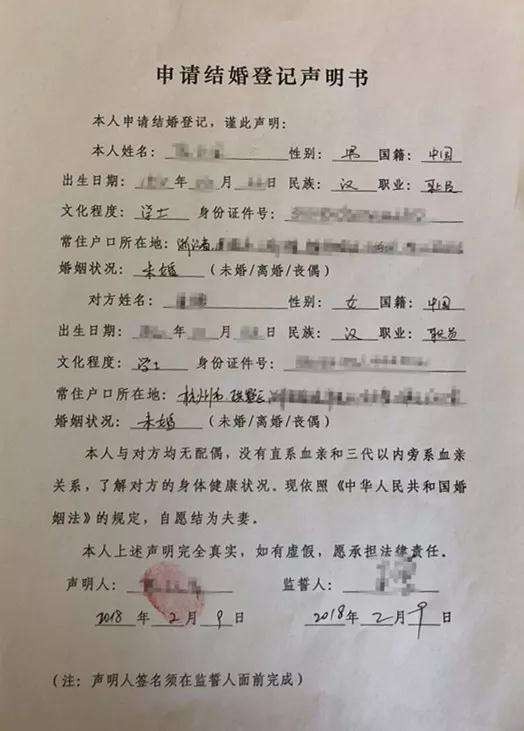 申请结婚登记声明书
本人申请结婚登记，谨此声明：
本人姓名： 性别：男 国籍：中国
出生日期： 年 月 日 民族：汉 职业：职员
文化程度：学士 身份证件号：
常住户口所在地：浙江省
婚姻状况：未婚（未婚/离婚/丧偶）
对方姓名： 性别：女 国籍：中国
出生日期： 年 月 日 民族：汉 职业：职员
文化程度：学士 身份证件号：
常住户口所在地：杭州市
婚姻状况：未婚（未婚/离婚/丧偶）
本人与对方均无配偶，没有直系血亲和三代以内旁系血亲
关系，了解对方的身体健康状况。现依照《中华人民共和国婚
姻法》的规定，自愿结为夫妻。
本人上述声明完全真实，如有虚假，愿承担法律责任。
声明人： 监誓人：
2018 年 2 月 9 日 2018 年 2 月 9 日
（注：声明人签名须在监誓人面前完成）